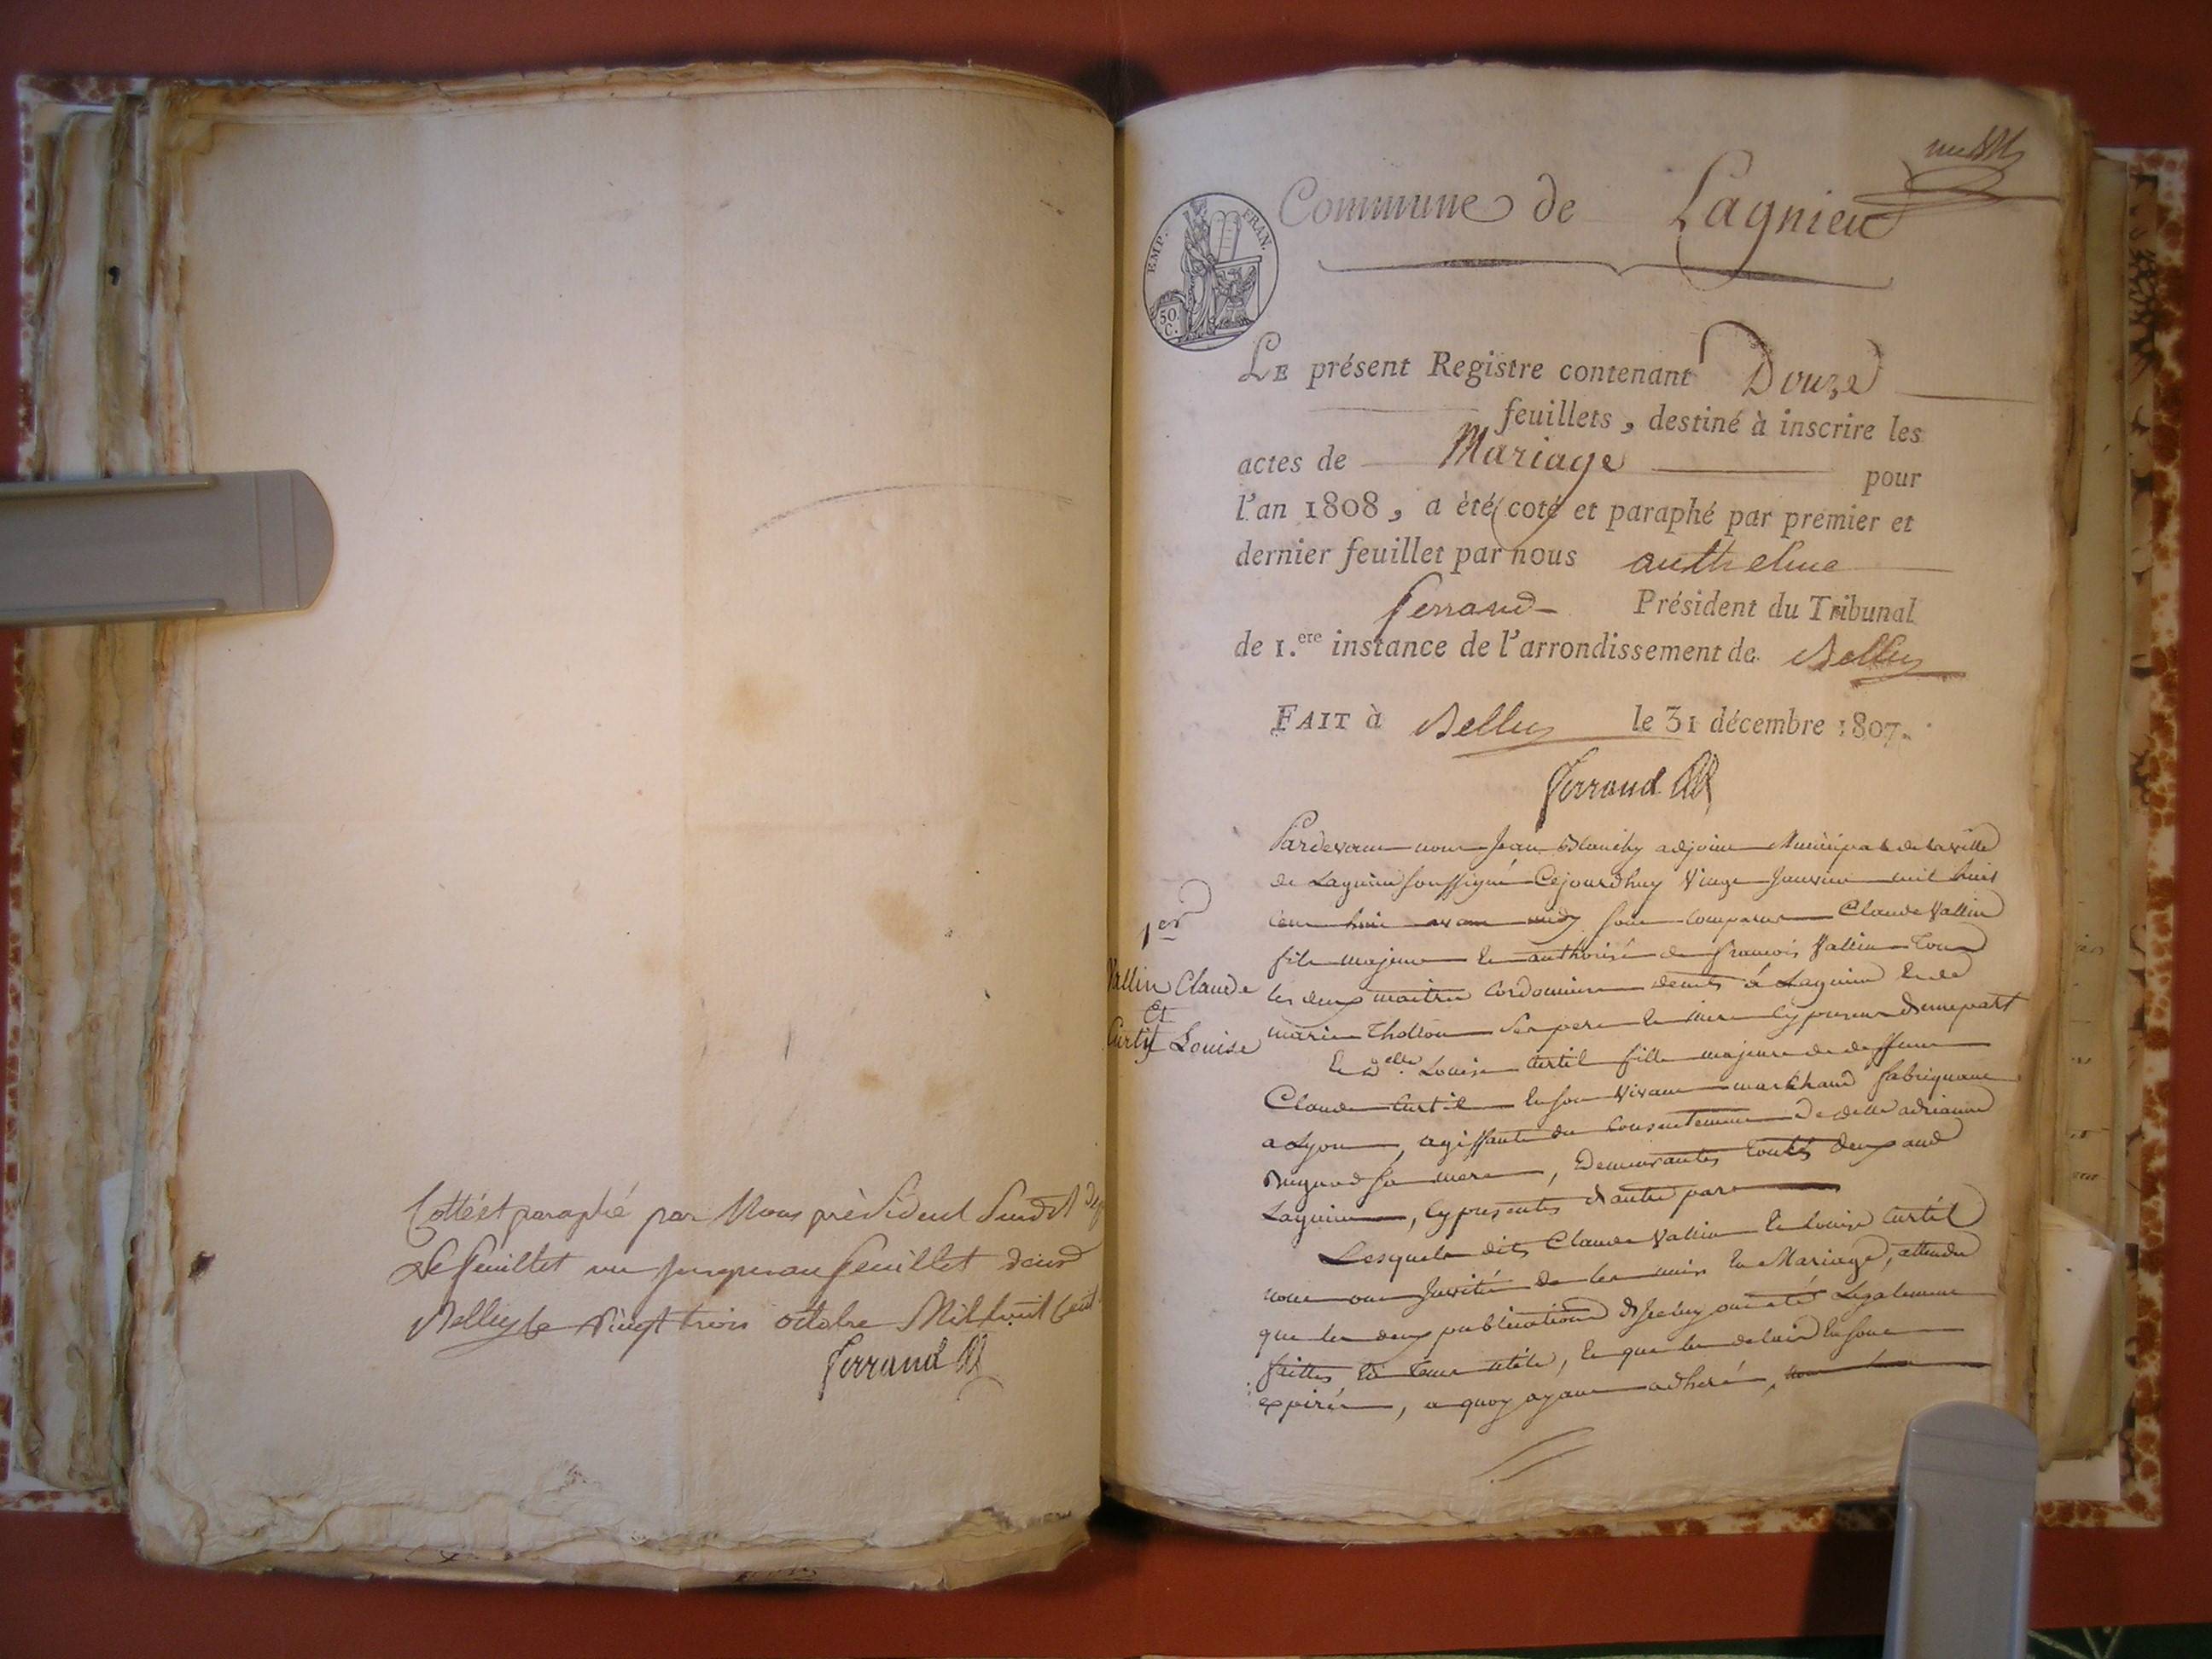 Cotté et paraphé par Nous président Susdit
Le feuillet un jusqu'au feuillet douze
Belley le vingt trois octobre Mil huit cent
Ferrand
un
Commune de Lagnieu
EMP. FRAN.
50. C.
LE présent Registre contenant Douze
feuillets, destiné à inscrire les
actes de Mariage pour
l'an 1808, a été coté et paraphé par premier et
dernier feuillet par nous anthelme
ferrand Président du Tribunal
de 1.ere instance de l'arrondissement de Belley
FAIT à Belley le 31 décembre 1807.
Ferrand
Pardevant nous Jean Blanchy adjoint Municipal de la ville
de Lagnieu soussigné Cejourdhuy vingt Janvier mil huit
cent huit avant midy sont comparus Claude Vallin
fils majeur et authorisé de francois Vallin tous
les deux maitres Cordonniers demts à Lagnieu et de
marie Thollon ses pere et mere cy presens dunepart
1er
Vallin Claude
Et
Curtil Louise
Et delle Louise Curtil fille majeure de deffunt
Claude Curtil en son vivant marchand fabriquant
a Lyon, agissante du consentement de delle adrianne
sa mere, Demeurantes toutes deux aud
Lagnieu, cy presentes d'autre part
Lesquels dits Claude Vallin et Louise Curtil
nous ont invité de les unir en Mariage, attendu
que les deux publications d'iceluy ont été Légalement
faittes en tems utile, et que les delais en sont
expirés, a quoy ayant adheré,